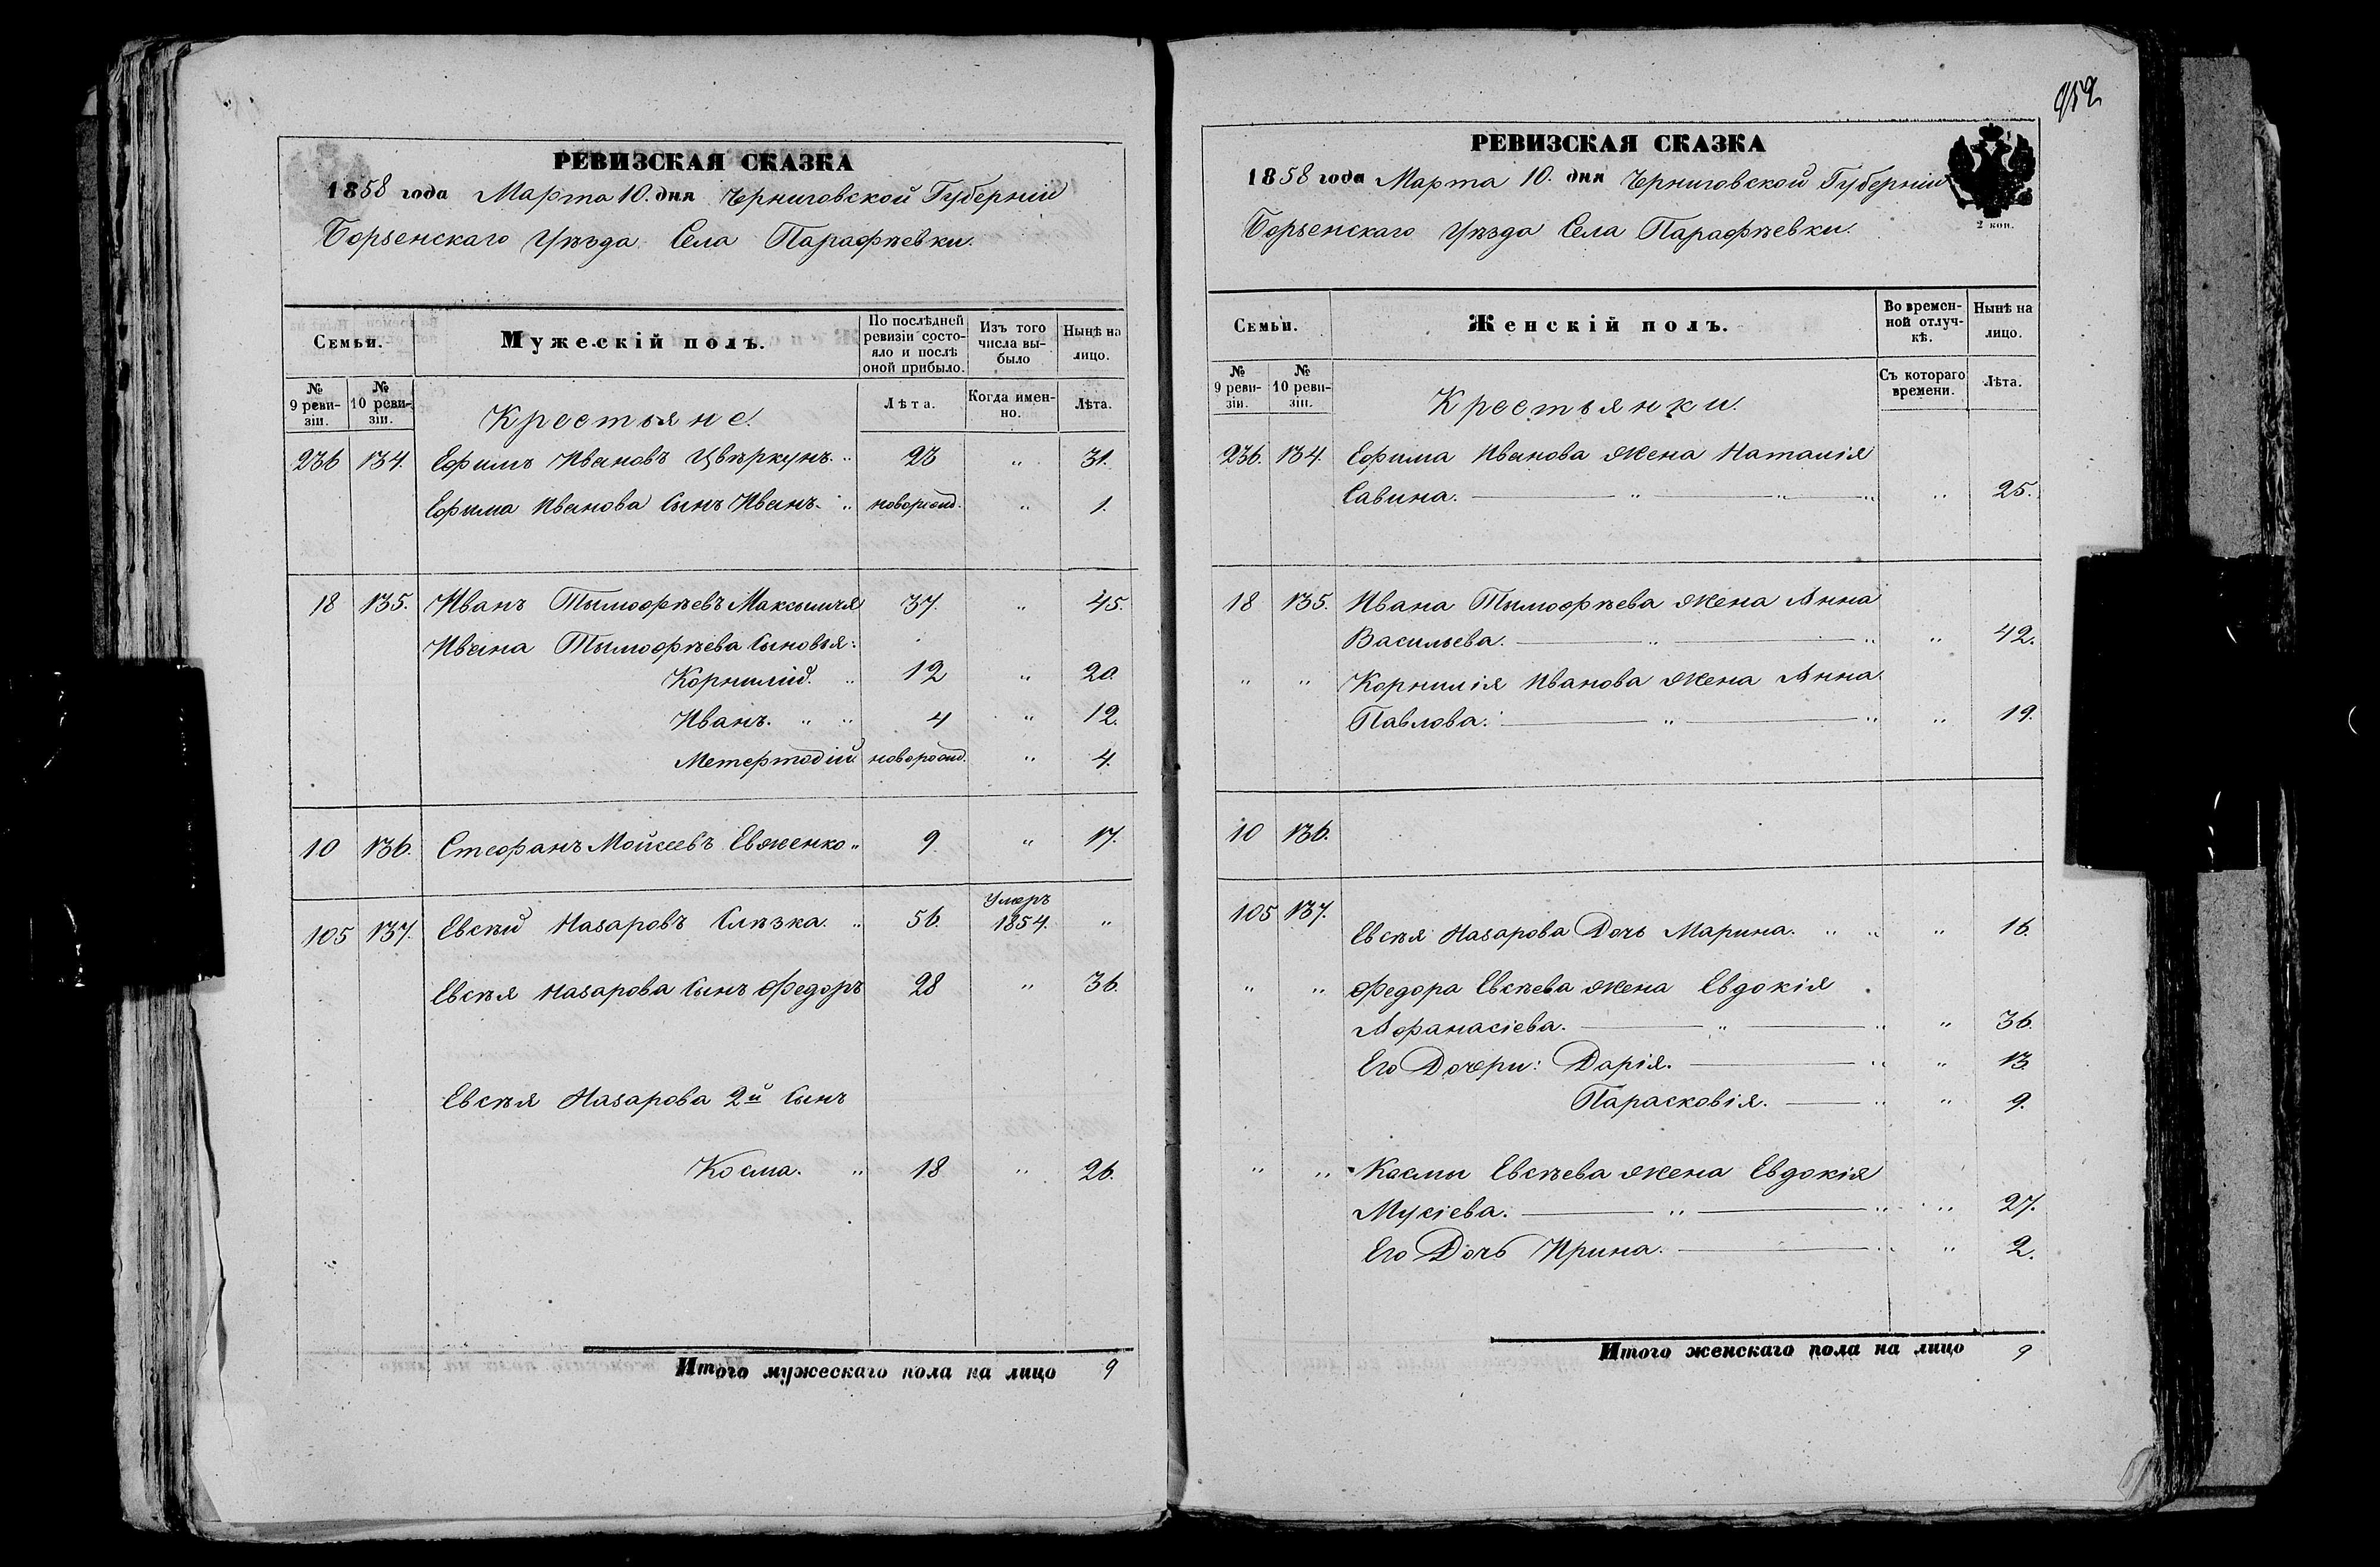 РЕВИЗСКАЯ СКАЗКА
1858 года Марта 10. дня Черниговской Губерніи
Борзенскаго Уѣзда Села Парафѣевки.
Семьи.
Мужескій полъ.
По послѣдней ревизіи состояло и послѣ оной прибыло.
Изъ того числа выбыло
Нынѣ на лицо.
№ 9 ревизіи.
№ 10 ревизіи.
Крестьяне.
Лѣта.
Когда именно.
Лѣта.
236 134. Ефимъ Ивановъ Цвѣркунъ. „ 23 „ 31.
Ефима Иванова Сынъ Иванъ. „ новорожд. „ 1.
18 135. Иванъ Тымофѣевъ 37. „ 45.
Ивана Тымофѣева Сыновья:
Корнилій. „ 12 „ 20.
Иванъ. „ „ 4 „ 12.
новорожд. „ 4.
10 136. Стефанъ Мойсеевъ Евженко „ 9 „ 17.
105 137. Евсѣй Назаровъ Слѣзка. „ 56. Умеръ 1854. „
Евсѣя Назарова Сынъ Федоръ 28 „ 36.
Евсѣя Назарова 2й Сынъ
Косма. „ 18 „ 26.
Итого мужескаго пола на лицо 9
952
РЕВИЗСКАЯ СКАЗКА
1858 года Марта 10. дня Черниговской Губерніи
Борзенскаго Уѣзда Села Парафѣевки.
2 коп.
Семьи.
Женскій полъ.
Во временной отлучкѣ.
Нынѣ на лицо.
№ 9 ревизіи.
№ 10 ревизіи.
Крестьянки.
Съ котораго времени.
Лѣта.
236. 134. Ефима Иванова жена Наталія
Савина. „ „ „ „ 25.
18 135. Ивана Тымофѣева жена Анна
Васильева. „ „ „ 42.
„ „ Корнилія Иванова жена Анна
Павлова. „ „ „ 19.
10 136.
105 137.
Евсѣя Назарова Дочь Марина. „ „ „ 16.
„ „ Федора Евсѣева жена Евдокія
Афанасіева. „ „ „ 36.
Его Дочери: Дарія. „ „ 13.
Парасковія. „ „ 9.
„ „ Космы Евсѣева жена Евдокія
Мусіева. „ „ „ 27.
Его Дочь Ирина. „ „ 2.
Итого женскаго пола на лицо 9